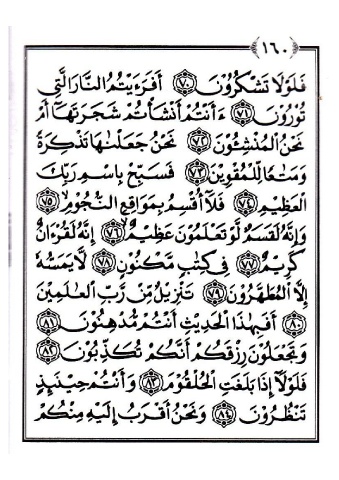 ١٦٠
فَلَوْلَا تَشْكُرُونَ ﴿٧٠﴾ أَفَرَءَيْتُمُ النَّارَ الَّتِي
تُورُونَ ﴿٧١﴾ ءَأَنْتُمْ أَنْشَأْتُمْ شَجَرَتَهَا أَمْ
نَحْنُ الْمُنْشِئُونَ ﴿٧٢﴾ نَحْنُ جَعَلْنٰهَا تَذْكِرَةً
وَمَتٰعًا لِّلْمُقْوِينَ ﴿٧٣﴾ فَسَبِّحْ بِاسْمِ رَبِّكَ
الْعَظِيمِ ﴿٧٤﴾ فَلَآ أُقْسِمُ بِمَوَاقِعِ النُّجُومِ ﴿٧٥﴾
وَإِنَّهُ لَقَسَمٌ لَّوْ تَعْلَمُونَ عَظِيمٌ ﴿٧٦﴾ إِنَّهُ لَقُرْءَانٌ
كَرِيمٌ ﴿٧٧﴾ فِي كِتٰبٍ مَّكْنُونٍ ﴿٧٨﴾ لَّا يَمَسُّهُ
إِلَّا الْمُطَهَّرُونَ ﴿٧٩﴾ تَنْزِيلٌ مِّنْ رَّبِّ الْعَالَمِينَ
﴿٨٠﴾ أَفَبِهٰذَا الْحَدِيثِ أَنْتُمْ مُّدْهِنُونَ ﴿٨١﴾
وَتَجْعَلُونَ رِزْقَكُمْ أَنَّكُمْ تُكَذِّبُونَ ﴿٨٢﴾
فَلَوْلَآ إِذَا بَلَغَتِ الْحُلْقُومَ ﴿٨٣﴾ وَأَنْتُمْ حِينَئِذٍ
تَنْظُرُونَ ﴿٨٤﴾ وَنَحْنُ أَقْرَبُ إِلَيْهِ مِنْكُمْ